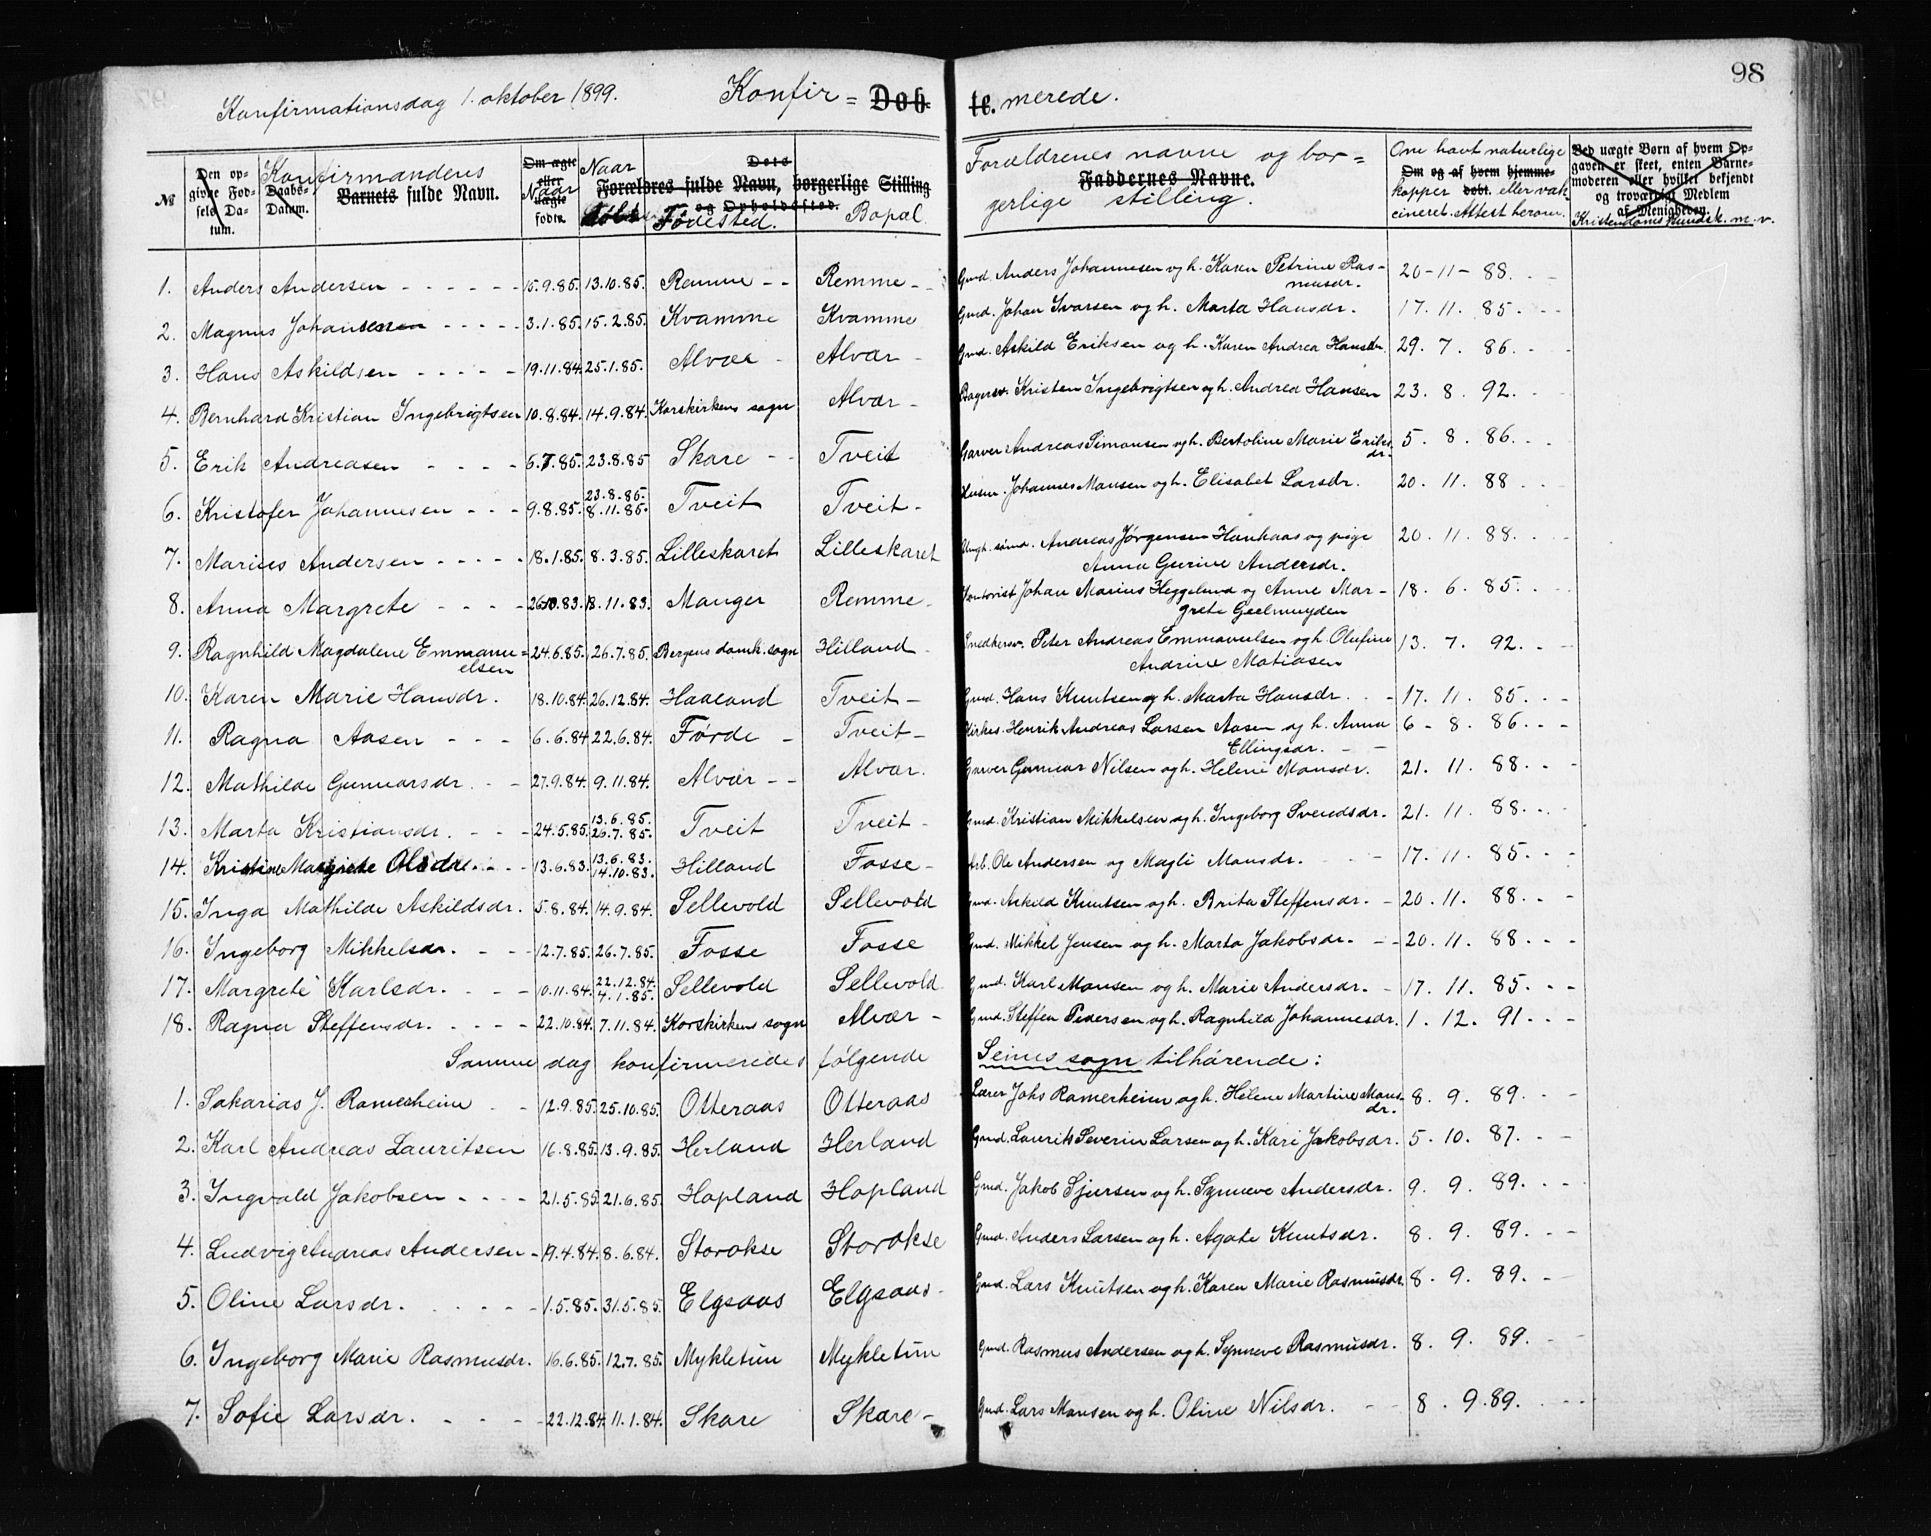 98
Konfirmationsdag 1. oktober 1899. Konfir = Døb te. merede.
№ Den opgivne Fødsels Datum. Daabs-Datum. Konfirmanderes Barnets fulde Navn. Om ægte eller uægte født. Naar Naar døbt Dets Forældres fulde Navn, borgerlige Stilling og Opholdssted. Fødested. Bopæl. Forældrenes navne og bor= Faddernes Navne. gerlige stilling. Om havt naturlige Om og af hvem hjemme- kopper døbt. eller vak cineret. Attest herom. Ved uægte Børn af hvem Opgaven er skeet, enten Barnemoderen eller hvilket bekjendt og troværdigt Medlem af Menigheden. Kristendomskundsk. m. v.
1. Anders Andersen - - - 15.9.85. 13.10.85. Remme - - Remme - Gmd. Anders Johannesen og h. Karen Petrine Ras-musdr. 20-11-88.
2. Magnus Johansen - - - 3.1.85. 15.2.85. Kvamme Kvamme Gmd. Johan Ivarsen og h. Marta Hansdr. 17. 11. 85.
3. Hans Askildsen - - - 19.11.84. 25.1.85. Alvær - Alvær - Gmd. Askild Eriksen og h. Karen Andrea Hansdr. 29. 7. 86.
4. Bernhard Kristian Ingebrigtsen 10.8.84. 14.9.84. Korskirkens sogn Alvær - Bagersv. Kristen Ingebrigtsen og h. Andrea Hansen 23. 8. 92.
5. Erik Andreasen - - - 6.7.85. 23.8.85 Skare - - Tveit Garver Andreas Simonsen og h. Bertoline Marie Eriksdr. 5. 8. 86.
6. Kristofer Johannesen - - - 9.8.85. 23.8.85. 8.11.85. Tveit Tveit - Husm. Johannes Monsen og h. Elisabet Larsdr. 20. 11. 88
7. Marius Andersen - - - 18.1.85. 8.3.85. Lilleskaret Lilleskaret Ungk. sømd. Andreas Jørgensen Hanhaas og pige Anna Gurine Andersdr. 20. 11. 88.
8. Anna Margrete - - - 26.10.83. 13.11.83. Manger Remme - Kontorist Johan Marius Heggelund og Anne Mar-grete Geelmuyden 18. 6. 85.
9. Ragnhild Magdalene Emmanu=elsen 24.6.85. 26.7.85. Bergens domk. sogn Hilland - Snedkersv. Peter Andreas Emmanuelsen og h. Olufine Andrine Matiasen 13. 7. 92.
10. Karen Marie Hansdr. 18.10.84. 26.12.84. Haaland Tveit - Gmd. Hans Knutsen og h. Marta Hansdr. 17. 11. 85.
11. Ragna Aasen - - - 6.6.84 22.6.84. Førde - Tveit - Kirkes. Henrik Andreas Larsen Aasen og h. Anna Ellingsdr. 6 - 8. 86.
12. Mathilde Gunnarsdr. - - 27.9.84. 9.11.84. Alvær - - Alvær. Garver Gunnar Nilsen og h. Helene Monsdr. 21. 11. 88.
13. Marta Kristiansdr. - - - 24.5.85. 13.6.85. 26.7.85. Tveit Tveit - Gmd. Kristian Mikkelsen og h. Ingeborg Svendsdr. 21. 11. 88.
14. Kristine Margrete Olsdr. - - 13.6.83. 13.6.83. 14.10.83. Hilland Fosse - Arb. Ole Andersen og Magli Monsdr. 17. 11. 85.
15. Inga Mathilde Askildsdr. 5.8.84. 14.9.84. Sellevold Sellevold Gmd. Askild Knutsen og h. Brita Steffensdr. 20. 11. 88.
16. Ingeborg Mikkelsdr. - - 12.7.85. 26.7.85. Fosse Fosse Gmd. Mikkel Jensen og h. Marta Jakobsdr. 20. 11. 88.
17. Margrete Karlsdr. - - - 10.11.84. 22.12.84. 4.1.85. Sellevold Sellevold Gmd. Karl Monsen og h. Marie Andersdr. 17. 11. 85.
18. Ragna Steffensdr. - - - 22.10.84. 7.11.84. Korskirkens sogn Alvær - Gmd. Steffen Pedersen og h. Ragnhild Johannesdr. 1. 12. 91.
Samme dag konfirmeredes følgende Seims sogn tilhørende:
1. Sakarias J. Ramerheim - - 12.9.85. 25.10.85. Otteraas Otteraas Lærer Johs Ramerheim og h. Helene Martine Monsdr. 8. 9. 89.
2. Karl Andreas Lauritsen 16.8.85. 13.9.85. Herland Herland Gmd. Laurits Severin Larsen og h. Kari Jakobsdr. 5. 10. 87.
3. Ingvald Jakobsen - - - 21.5.85. 21.6.85. Hopland Hopland Gmd. Jakob Sjursen og h. Synneve Andersdr. 9. 9. 89.
4. Ludvig Andreas Andersen - 19.4.84. 8.6.84. Storokse Storokse Gmd. Anders Larsen og h. Agate Knutsdr. 8. 9. 89.
5. Oline Larsdr. - - - 1.5.85. 31.5.85. Elgsaas Elgsaas - Gmd. Lars Knutsen og h. Karen Marie Rasmusdr. 8. 9. 89.
6. Ingeborg Marie Rasmusdr. 16.6.85. 12.7.85. Mykletun Mykletun Gmd. Rasmus Andersen og h. Synneve Rasmusdr. 8. 9. 89.
7. Sofie Larsdr. - - - 22.12.84. 11.1.84. Skare Skare - Gmd. Lars Monsen og h. Oline Nilsdr. 8. 9.89.